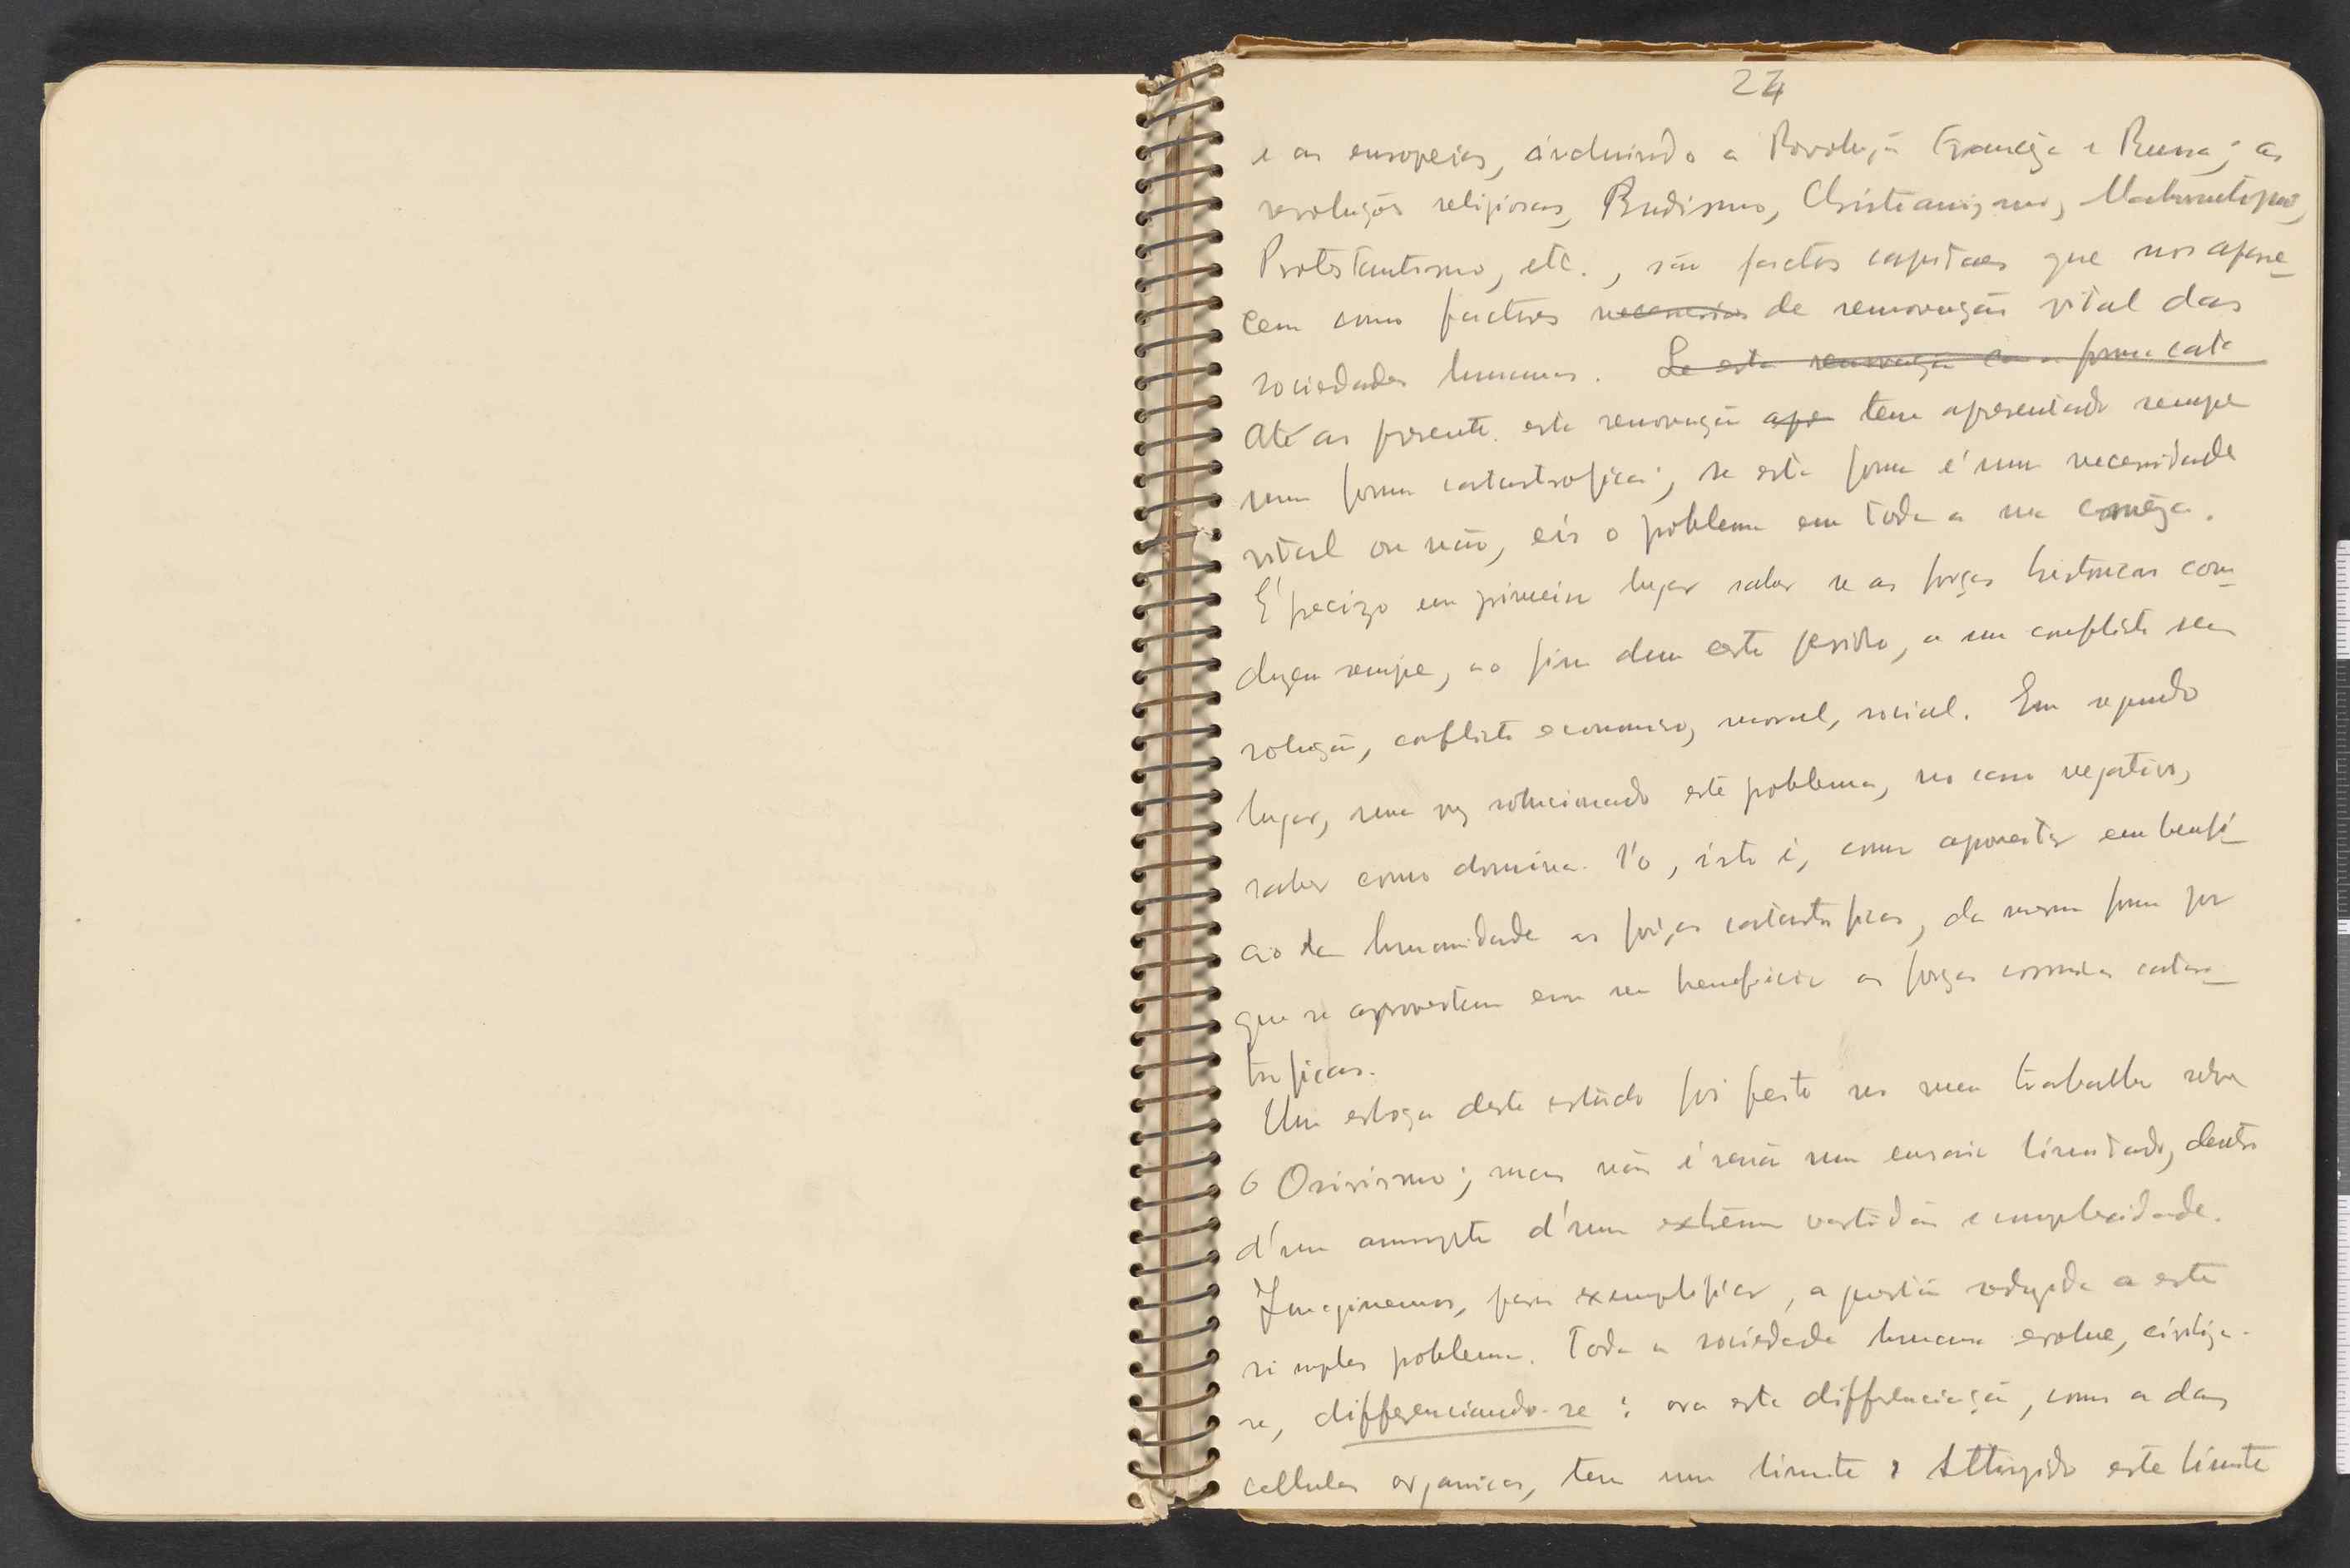 24
e as europeias, incluindo a Revolução Franceza e Russa; as
revoluções religiosas, Budismo, Christianizmo, Mahometismo,
Protestantismo, etc., são factos capitaes que nos apare-
cem como factores necessarios de renovação vital das
sociedades humanas. Se esta renovação forma cata
Até ao presente esta renovação apr tem apresentado sempre
uma forma catastrofica; se esta forma é uma necessidade
vital ou não, eis o problema em toda a sua crueza.
É precizo em primeiro lugar saber se as forças historicas con-
duzem sempre, ao fim dum certo periodo, a um conflicto sem
solução, conflicto economico, moral, social. Em segundo
lugar, uma vez solucionado este problema, no caso negativo,
saber como domina-l'o, isto é, como aproveitar em benefi-
cio da humanidade as forças catastroficas, da mesma forma por
que se aproveitam em seu beneficio as forças cosmicas catas-
troficas.
Um esboço deste estudo foi feito no meu trabalho sobre
o Osirismo; mas não é senão um ensaio limitado, dentro
d'um assumpto d'uma extrema vastidão e complexidade.
Imaginemos, para exemplificar, a questão reduzida a este
simples problema. Toda a sociedade humana evolue, civiliza-
se, differenciando-se: ora esta differenciação, como a das
cellulas organicas, tem um limite. Attingido este limite